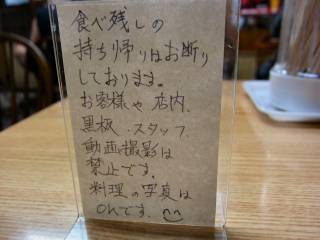 食べ残しの
持ち帰りはお断り
しております。
お客様や店内、
黒板、スタッフ、
動画撮影は
禁止です。
料理の写真は
OKです。